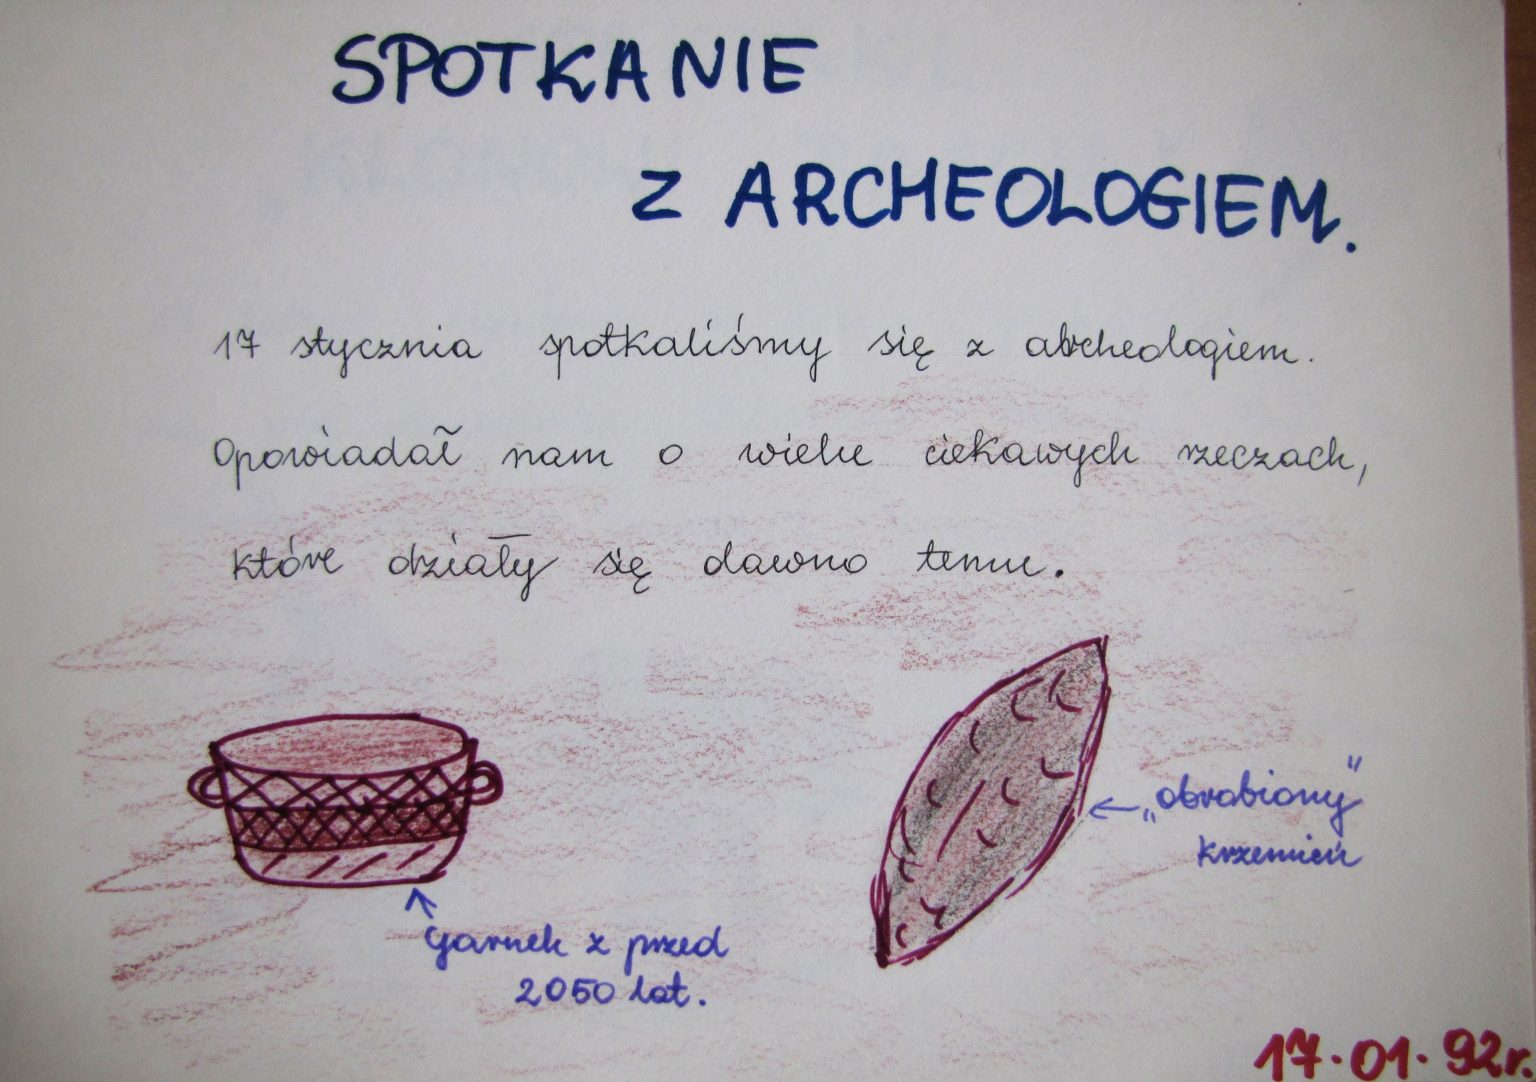 SPOTKANIE
Z ARCHEOLOGIEM.
17 stycznia spotkaliśmy się z archeologiem.
Opowiadał nam o wielu ciekawych rzeczach,
które działy się dawno temu.
← „obrabiony”
krzemień
↑ garnek z przed
2050 lat.
17.01.92r.